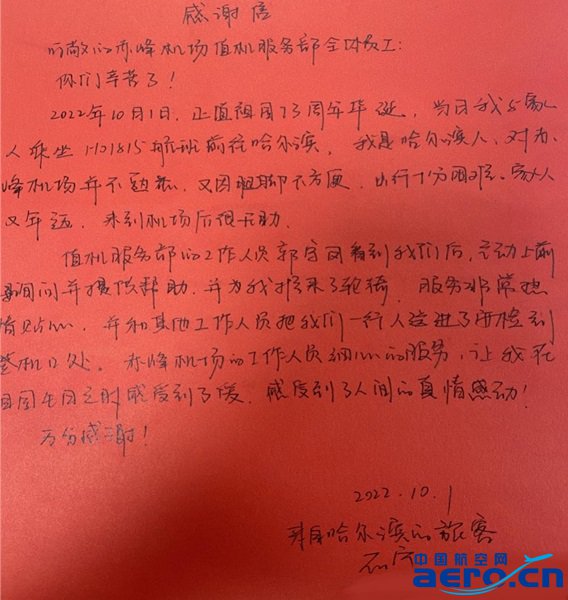 感谢信
可敬的赤峰机场值机服务部全体员工:
你们辛苦了!
2022年10月1日,正值祖国73周年华诞,当日我与家
人乘坐HO1815航班前往哈尔滨。我是哈尔滨人,对赤
峰机场并不熟悉,又因腿脚不方便,出行十分困难。家人
又年迈,来到机场后很无助。
值机服务部的工作人员郭宇看到我们后,主动上前
询问并提供帮助,并为我推来了轮椅,服务非常热
情贴心,并和其他工作人员把我们一行人送进了安检到
登机口处。赤峰机场的工作人员细心的服务,让我在
国庆之时感受到了暖,感受到了人间的真情感动!
万分感谢!
2022.10.1
来自哈尔滨的旅客
中国航空网
aero.cn